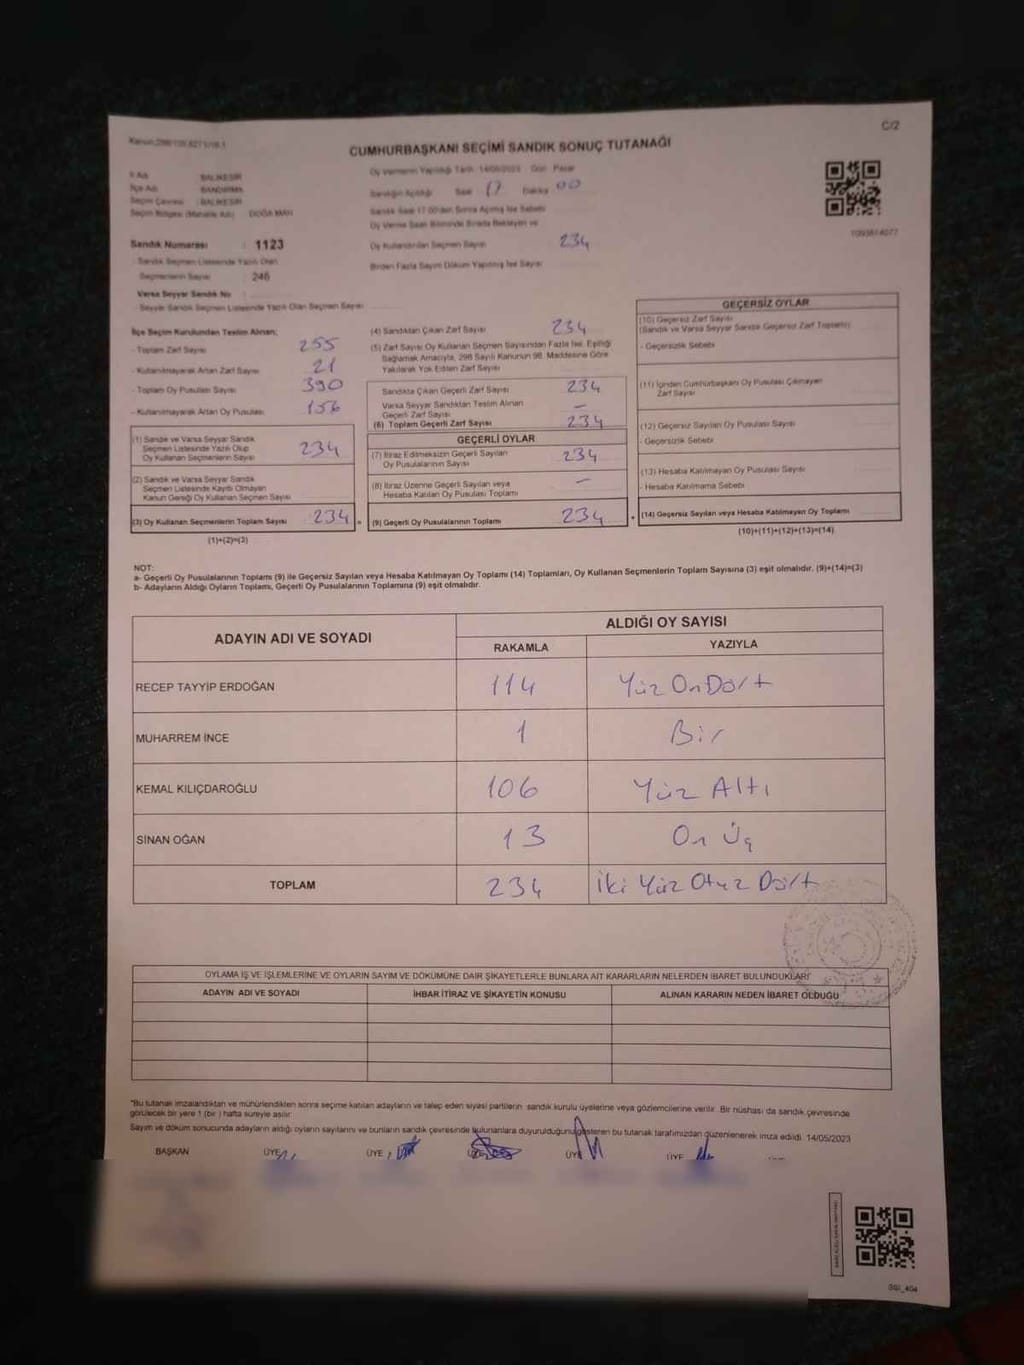 C/2
CUMHURBAŞKANI SEÇİMİ SANDIK SONUÇ TUTANAĞI
Oy Vermenin Yapıldığı Tarih 14/05/2023 Gün Pazar
İl Adı BALIKESİR
İlçe Adı BANDIRMA
Seçim Çevresi BALIKESİR
Seçim Bölgesi (Mahalle Adı) DOĞA MAH
Sandığın Açıldığı Saat 17 Dakika 00
Sandık Saat 17:00'den Sonra Açılmış İse Sebebi
Oy Verme Saati Bitiminde Sırada Bekleyen ve
Oy Kullandırılan Seçmen Sayısı 234
Birden Fazla Sayım Döküm Yapılmış İse Sayısı
Sandık Numarası : 1123
- Sandık Seçmen Listesinde Yazılı Olan
Seçmenlerin Sayısı : 246
Varsa Seyyar Sandık No
- Seyyar Sandık Seçmen Listesinde Yazılı Olan Seçmen Sayısı
İlçe Seçim Kurulundan Teslim Alınan;
- Toplam Zarf Sayısı 255
- Kullanılmayarak Artan Zarf Sayısı 21
- Toplam Oy Pusulası Sayısı 390
- Kullanılmayarak Artan Oy Pusulası 156
(1) Sandık ve Varsa Seyyar Sandık
Seçmen Listesinde Yazılı Olup
Oy Kullanan Seçmenlerin Sayısı 234
(2) Sandık ve Varsa Seyyar Sandık
Seçmen Listesinde Kayıtlı Olmayan
Kanun Gereği Oy Kullanan Seçmen Sayısı
(3) Oy Kullanan Seçmenlerin Toplam Sayısı 234
(1)+(2)=(3)
(4) Sandıktan Çıkan Zarf Sayısı 234
(5) Zarf Sayısı Oy Kullanan Seçmen Sayısından Fazla İse, Eşitliği
Sağlamak Amacıyla, 298 Sayılı Kanunun 98. Maddesine Göre
Yakılarak Yok Edilen Zarf Sayısı
Sandıkta Çıkan Geçerli Zarf Sayısı 234
Varsa Seyyar Sandıktan Teslim Alınan
Geçerli Zarf Sayısı –
(6) Toplam Geçerli Zarf Sayısı 234
GEÇERLİ OYLAR
(7) İtiraz Edilmeksizin Geçerli Sayılan
Oy Pusulalarının Sayısı 234
(8) İtiraz Üzerine Geçerli Sayılan veya
Hesaba Katılan Oy Pusulası Toplamı –
(9) Geçerli Oy Pusulalarının Toplamı 234
GEÇERSİZ OYLAR
(10) Geçersiz Zarf Sayısı
(Sandık ve Varsa Seyyar Sandık Geçersiz Zarf Toplamı)
- Geçersizlik Sebebi
(11) İçinden Cumhurbaşkanı Oy Pusulası Çıkmayan
Zarf Sayısı
(12) Geçersiz Sayılan Oy Pusulası Sayısı
- Geçersizlik Sebebi
(13) Hesaba Katılmayan Oy Pusulası Sayısı
- Hesaba Katılmama Sebebi
(14) Geçersiz Sayılan veya Hesaba Katılmayan Oy Toplamı
(10)+(11)+(12)+(13)=(14)
NOT:
a- Geçerli Oy Pusulalarının Toplamı (9) ile Geçersiz Sayılan veya Hesaba Katılmayan Oy Toplamı (14) Toplamları, Oy Kullanan Seçmenlerin Toplam Sayısına (3) eşit olmalıdır. (9)+(14)=(3)
b- Adayların Aldığı Oyların Toplamı, Geçerli Oy Pusulalarının Toplamına (9) eşit olmalıdır.
ADAYIN ADI VE SOYADI ALDIĞI OY SAYISI
RAKAMLA YAZIYLA
RECEP TAYYİP ERDOĞAN 114 Yüz On Dört
MUHARREM İNCE 1 Bir
KEMAL KILIÇDAROĞLU 106 Yüz Altı
SİNAN OĞAN 13 On Üç
TOPLAM 234 İki Yüz Otuz Dört
OYLAMA İŞ VE İŞLEMLERİNE VE OYLARIN SAYIM VE DÖKÜMÜNE DAİR ŞİKAYETLERLE BUNLARA AİT KARARLARIN NELERDEN İBARET BULUNDUKLARI
ADAYIN ADI VE SOYADI İHBAR İTİRAZ VE ŞİKAYETİN KONUSU ALINAN KARARIN NEDEN İBARET OLDUĞU
*Bu tutanak imzalandıktan ve mühürlendikten sonra seçime katılan adayların ve talep eden siyasi partilerin sandık kurulu üyelerine veya gözlemcilerine verilir. Bir nüshası da sandık çevresinde
görülecek bir yere 1 (bir) hafta süreyle asılır.
Sayım ve döküm sonucunda adayların aldığı oyların sayılarını ve bunların sandık çevresinde bulunanlara duyurulduğunu gösteren bu tutanak tarafımızdan düzenlenerek imza edildi. 14/05/2023
BAŞKAN ÜYE ÜYE ÜYE ÜYE ÜYE